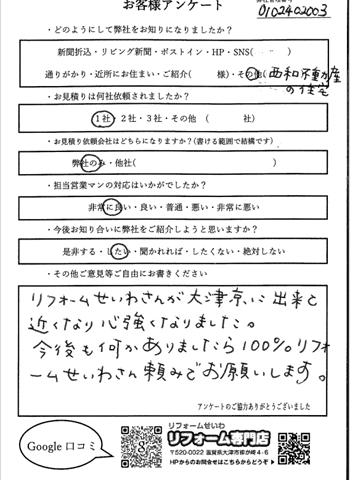 お客様アンケート
0102402003
・どのようにして弊社をお知りになりましたか？
新聞折込・リビング新聞・ポストイン・HP・SNS(　　　)
通りがかり・近所にお住まい・ご紹介(　　　様)・その他( 西和不動産
の住宅
・お見積りは何社依頼されましたか？
1社・2社・3社・その他　(　　　社)
・お見積り依頼会社はどちらになりますか？(書ける範囲で結構です)
弊社のみ・他社(　　　)
・担当営業マンの対応はいかがでしたか？
非常に良い・良い・普通・悪い・非常に悪い
・今後お知り合いに弊社をご紹介しようと思いますか？
是非する・したい・聞かれれば・したくない・絶対しない
・その他ご意見等ご自由にお書きください
リフォームせいわさんが大津京に出来て
近くなり心強くなりました。
今後も何かありましたら100%リフォ
ームせいわさん頼みでお願いします。
アンケートのご協力ありがとうございました
Google 口コミ
リフォームせいわ
リフォーム専門店
〒520-0022 滋賀県大津市柳が崎4-6
HPからのお問合せはこちらからどうぞ